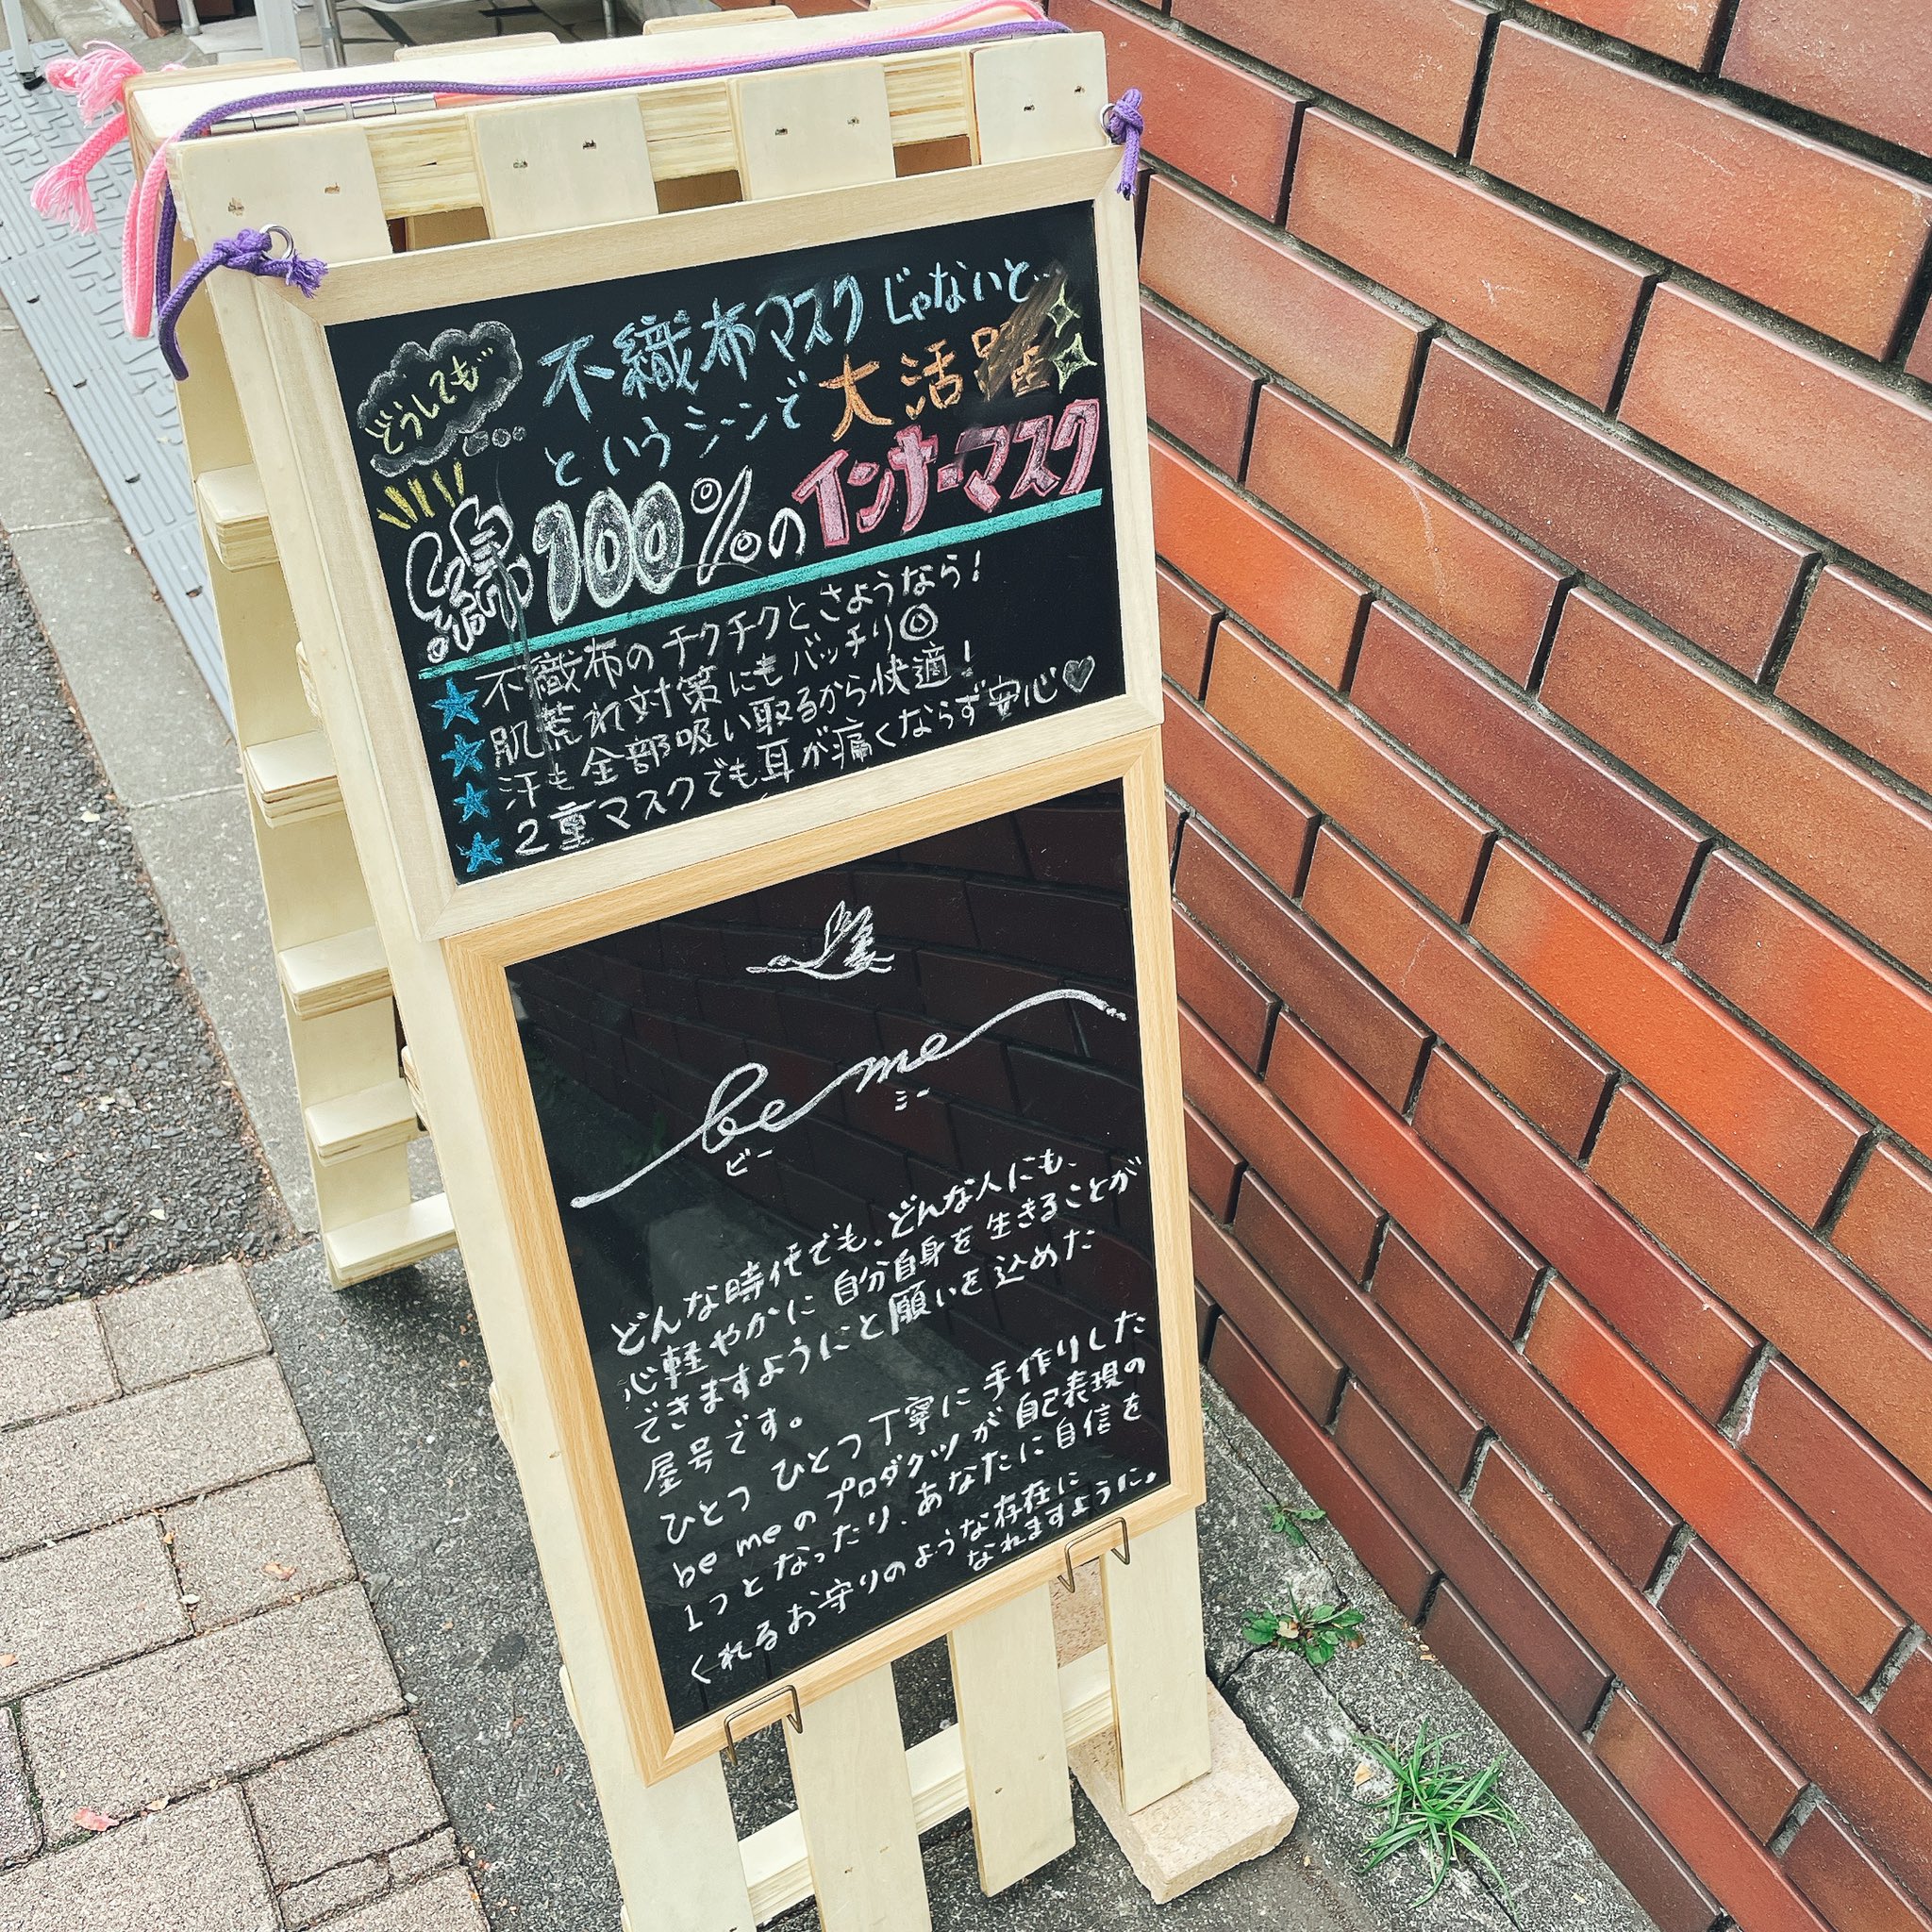 どうしても
不織布マスクじゃないと…
というシーンで大活躍
綿100%のインナーマスク
★不織布のチクチクとさようなら!
★肌荒れ対策にもバッチリ◎
★汗も全部吸い取るから快適!
★2重マスクでも耳が痛くならず安心♡
be me
ビー ミー
どんな時代でも、どんな人にも、
心軽やかに自分自身を生きることが
できますようにと願いを込めた
屋号です。
ひとつひとつ丁寧に手作りした
be meのプロダクツが自己表現の
1つとなったり、あなたに自信を
くれるお守りのような存在に
なれますように。